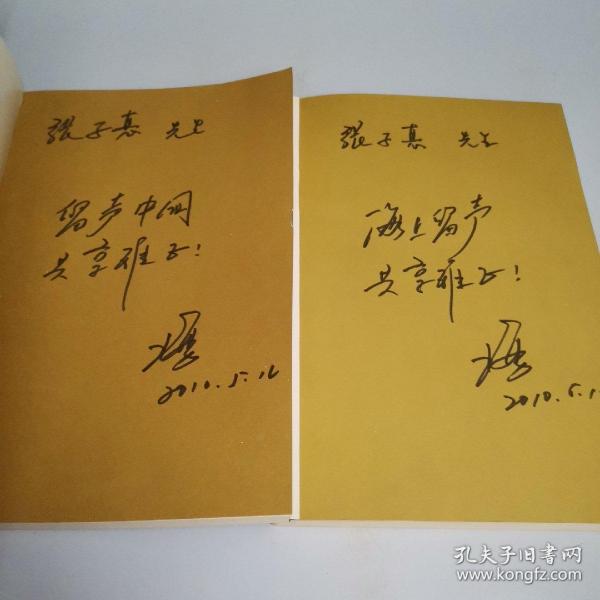 張子惠 先生
留声中国
共享雅正!
2010.5.16
張子惠 先生
海上留声
共享雅正!
2010.5.1
孔夫子旧书网
www.kongfz.com